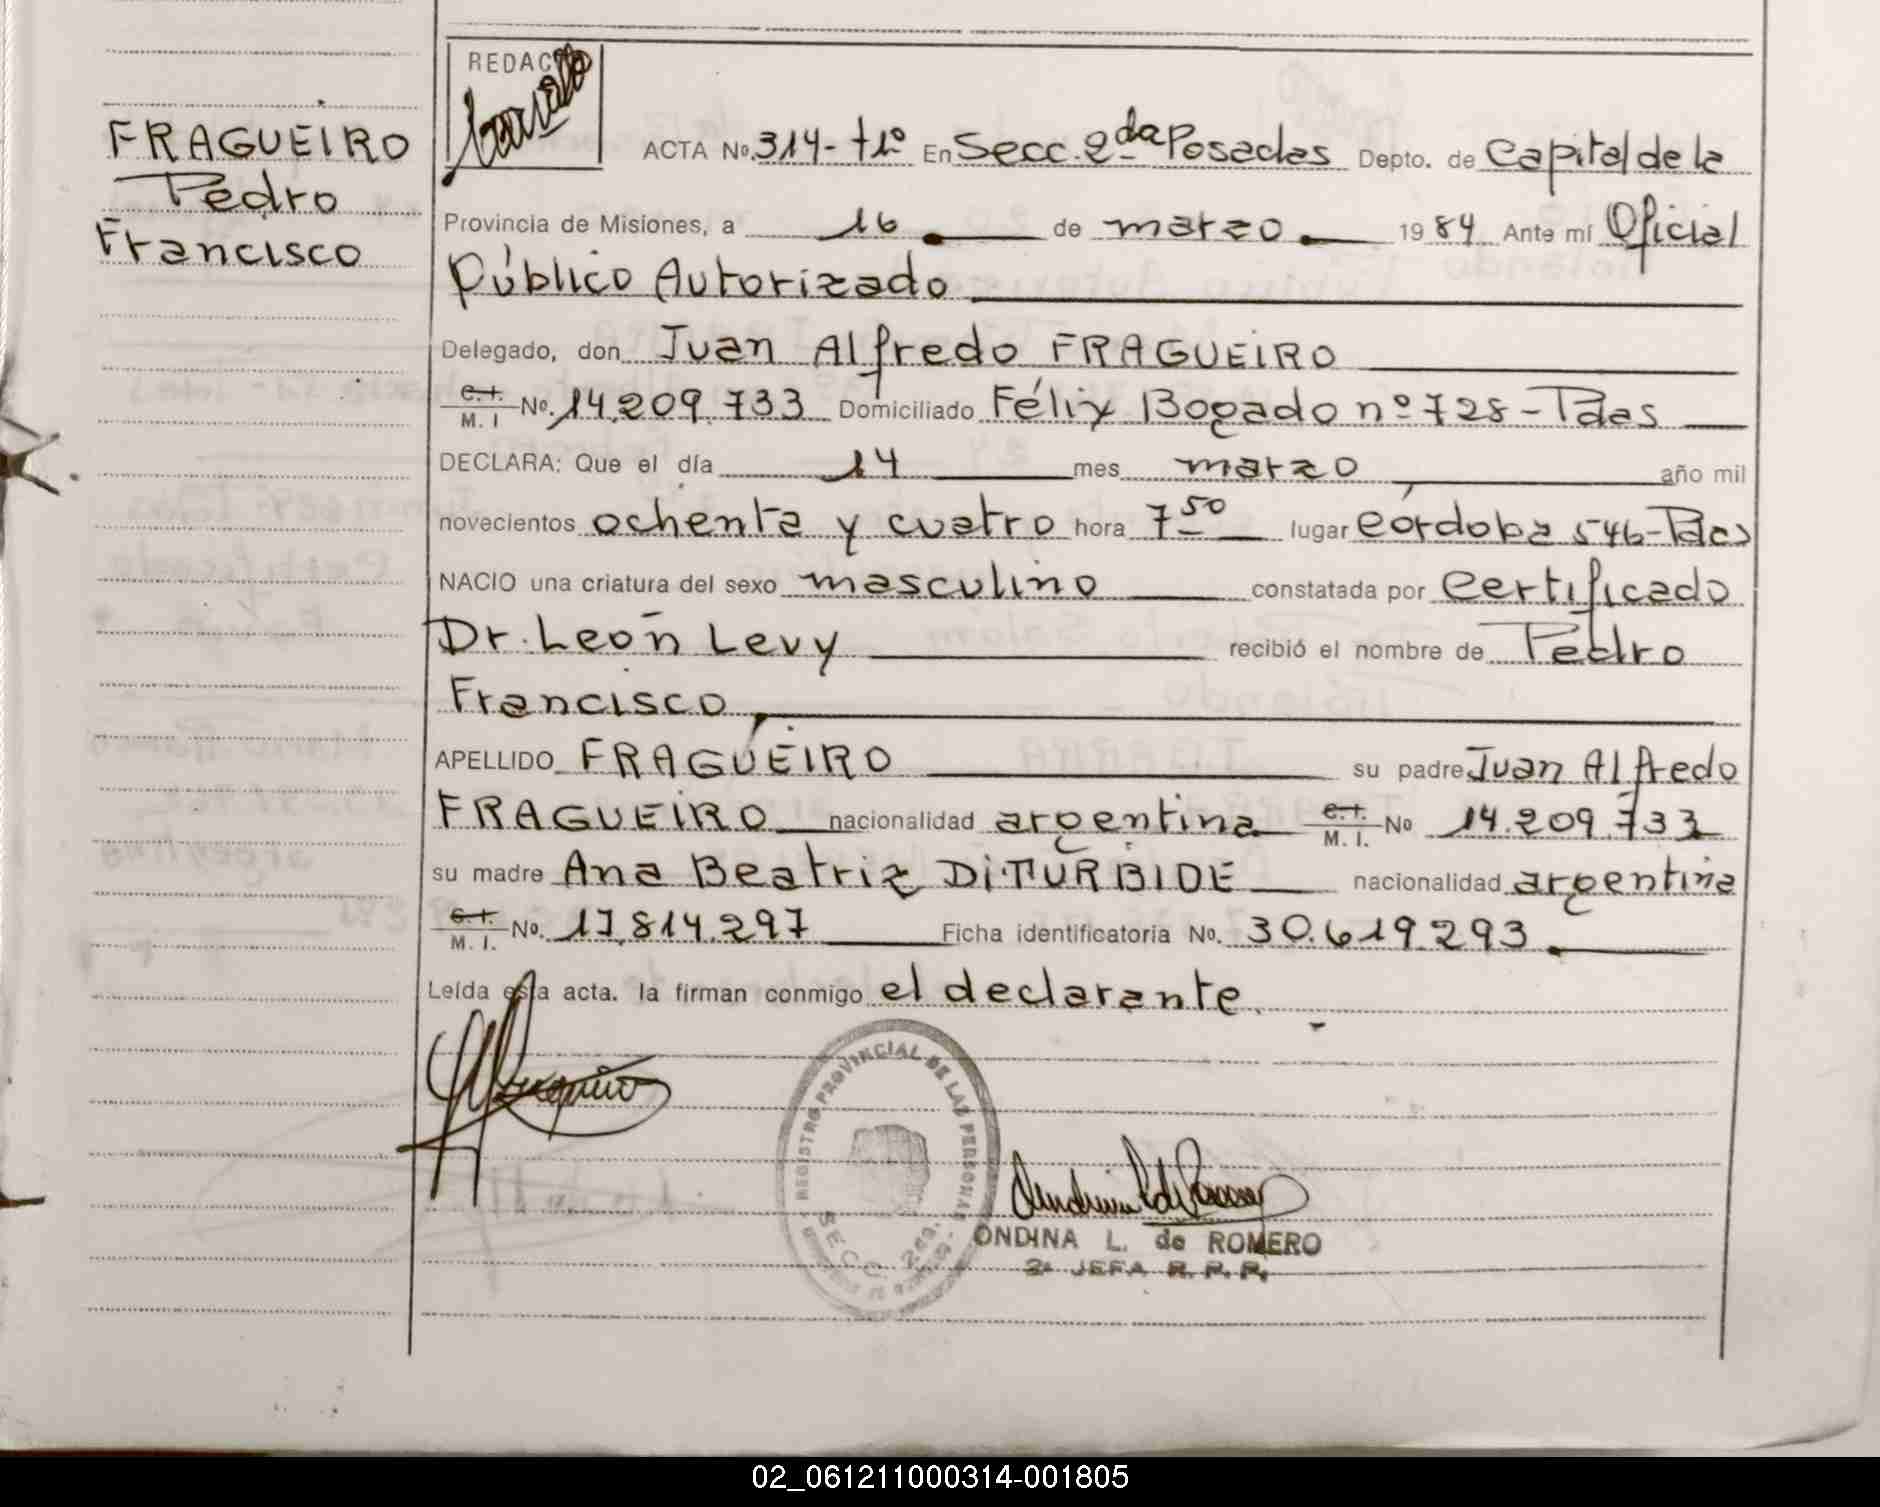 FRAGUEIRO
Pedro
Francisco
REDACTÓ
ACTA No. 314- t1º En Secc. 2da Posadas Depto. de Capital de la
Provincia de Misiones, a 16 de marzo 1984 Ante mí Oficial
Público Autorizado
Delegado, don Juan Alfredo FRAGUEIRO
C.I. M. I No. 14.209.733 Domiciliado Félix Bogado nº 728 - Pdas
DECLARA: Que el día 14 mes marzo año mil
novecientos ochenta y cuatro hora 7 50 lugar Córdoba 546-Pdas
NACIO una criatura del sexo masculino constatada por Certificado
Dr. León Levy recibió el nombre de Pedro
Francisco
APELLIDO FRAGUEIRO su padre Juan Alfredo
FRAGUEIRO nacionalidad argentina C.I. M. I. No 14.209.733
su madre Ana Beatriz DiTURBIDE nacionalidad argentina
C.I. M. I. No. 17.814.297 Ficha identificatoria No. 30.619.293
Leída esta acta. la firman conmigo el declarante.
REGISTRO PROVINCIAL DE LAS PERSONAS
SECC. 2da.
ONDINA L. de ROMERO
2ª JEFA R. P. P.
02_061211000314-001805